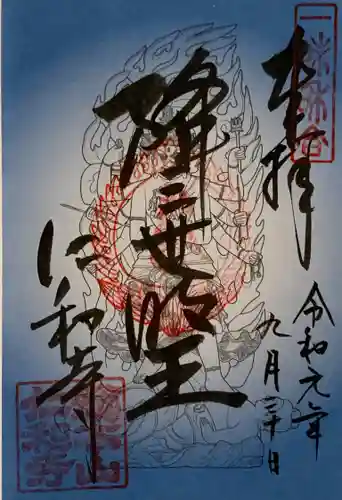 奉拝
令和元年
九月三十日
降三世明王
仁和寺